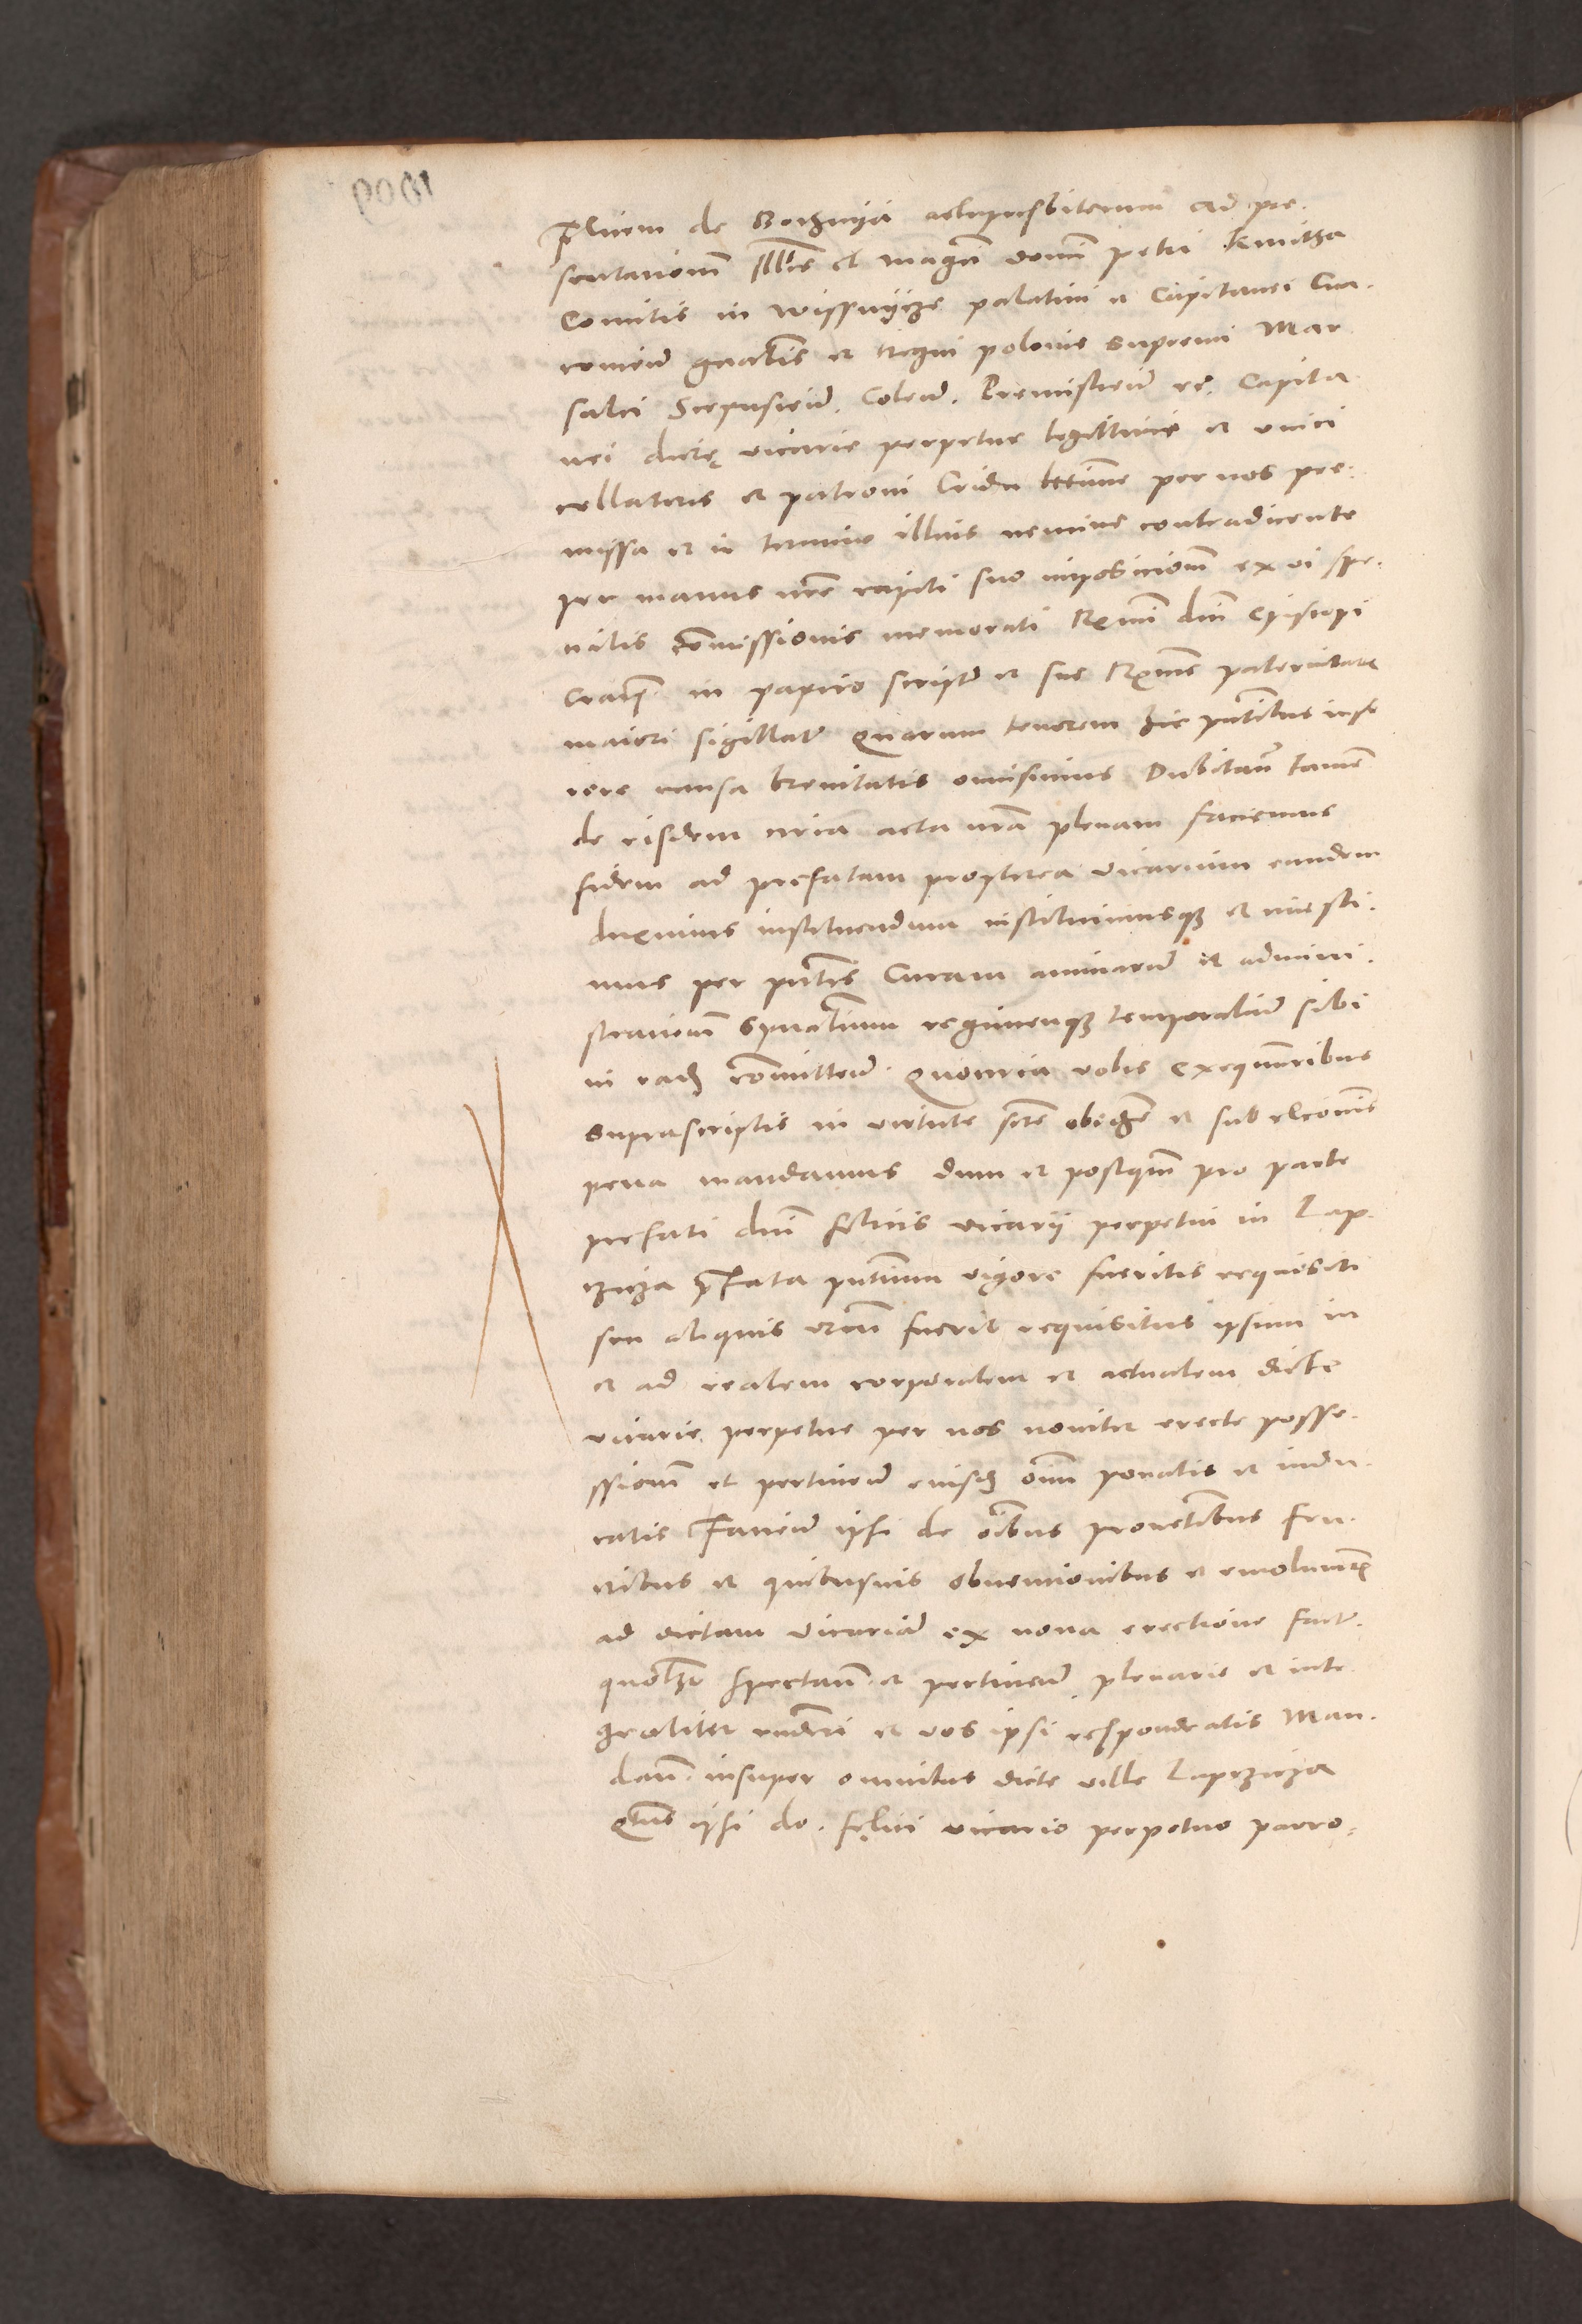 Felicem de Bochnija actu presbiterum ad pre-
sentationem Illris et magci domi petri kmitha
Comitis in wissnycze palatini et Capitanei Cra-
covien gnalis et regni polonie supremi Mar
salci Scepusien. Colen. Premislien etc. Capita
nei dictę vicarie perpetue legittimi et unici
collatoris et patroni Crida per nos pre-
missa et in termino illius nemine contradicente
per manus nre capiti suo imposicionem ex vi spe-
cialis commissionis memorati Rmi dni Episcopi
Cracovien in papiro script et sue Rme paternitatis
maiori sigillat Quarum tenorem hic pntibus inse
rere causa brevitatis omisimus Dubitan tamen
de eisdem circa acta nra plenam faciemus
fidem ad prefatam propterea vicariam eundem
duximus instituendum instituimusque et investi-
mus per pntes Curam animarum et admini-
strationem spualium regimenque temporalium sibi
in eadem committen. Quocirca vobis exequutoribus
suprascriptis in virtute scte obedie et sub exconis
pena mandamus dum et postquam pro parte
prefati dni felicis vicarij perpetui in Lap-
czicza pfata pntium vigore fueritis requisiti
seu aliquis vrum fuerit requisitus ipsum in
et ad realem corporalem et actualem dicte
vicarie perpetue per nos noviter erecte posse-
ssionem et pertinen eiusdem omnium ponatis et indu-
catis Facien ipsi de oibus proventibus fru-
ctibus et quibusvis obventionibus et emolumentis
ad dictam vicariam ex nova erectione fact
quolibet spectan et pertinen plenarie et inte
graliter responderi et vos ipsi respondeatis Man-
dan insuper omnibus dicte ville Lapczicza
Qtus ipsi do. fęlici vicario perpetuo parro-